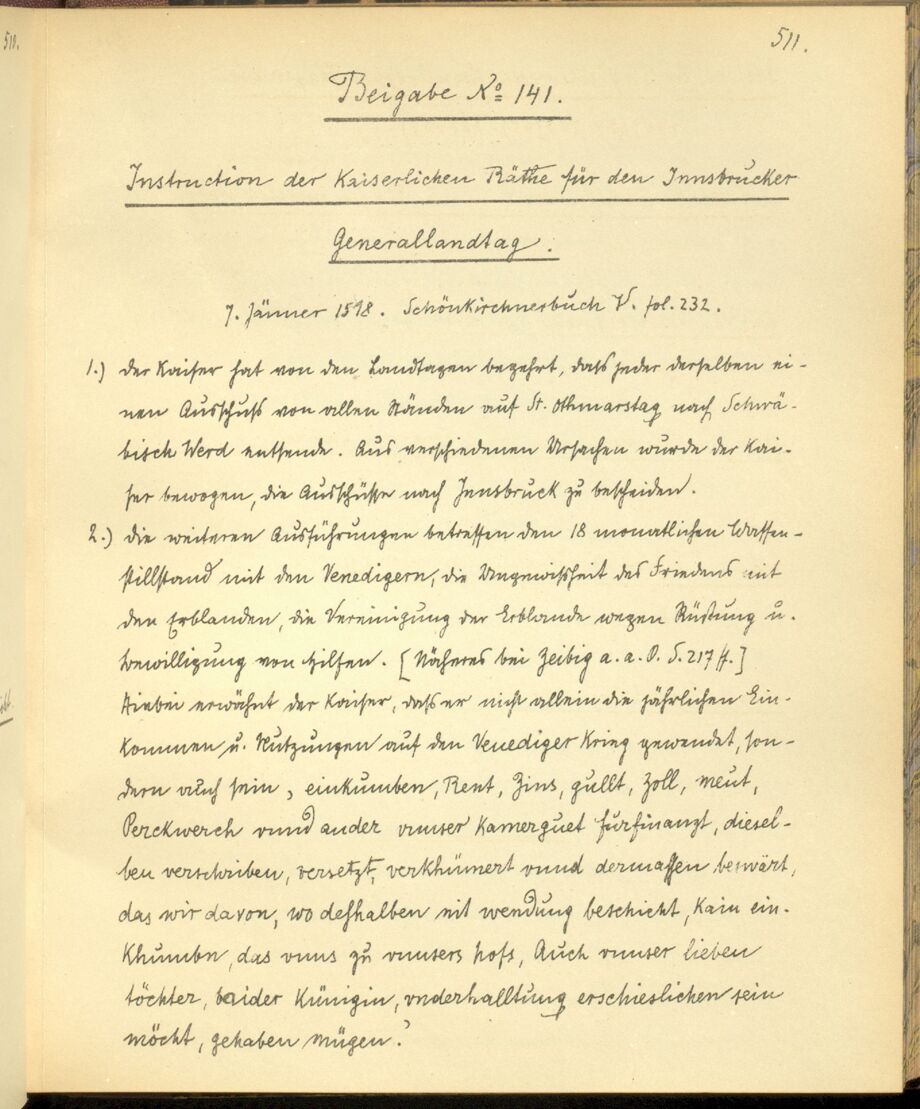 510.
511.
Beigabe No 141.
Instruction der Kaiserlichen Räthe für den Innsbrucker
Generallandtag.
7. Jänner 1518. Schönkirchnerbuch V. fol. 232.
1.) Der Kaiser hat von den Landtagen begehrt, dass jeder derselben ei-
nen Ausschuss von allen Ständen auf St. Othmarstag nach Schwä-
bisch Werd entsende. Aus verschiedenen Ursachen wurde der Kai-
ser bewogen, die Ausschüsse nach Innsbruck zu bescheiden.
2.) Die weiteren Ausführungen betreffen den 18 monatlichen Waffen-
stillstand mit den Venedigern, die Ungewissheit des Friedens mit
den Erblanden, die Vereinigung der Erblande wegen Rüstung u.
Bewilligung von Hilfen. [Näheres bei Zeibig a. a. O. S. 217 ff.]
Hiebei erwähnt der Kaiser, dass er nicht allein die jährlichen Ein-
kommen u. Nutzungen auf den Venediger Krieg gewendet, son-
dern auch sein „einkumben, Rent, Zins, gullt, Zoll, meut,
Perckwerch vnnd ander vnnser Kamerguet furfinanzt, diesel-
ben verschriben, versetzt, verkhümert vnnd dermassen
das wir davon, wo desshalben nit wendung beschicht, kain ein-
khumbn, das vnns zu vnnsers hofs, Auch vnnser lieben
töchter, baider Künigin, vnderhalltung erschieslichen sein
möcht, gehaben mügen."